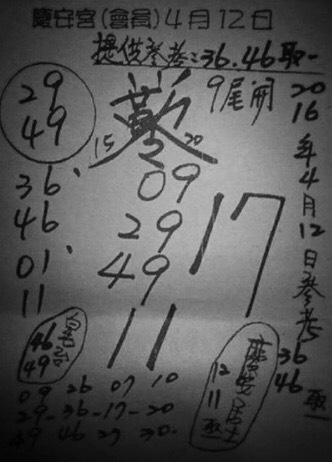 慶安宮(會員)4月12日
提供參卷:36.46取一
29
49
9尾開
2016年4月12日參考
36
46取一
15
20
36
46
01
11
09
29
49
11
17
46
49
12
11取
09 26 07 10
29-36-17-20
49 46 27 30